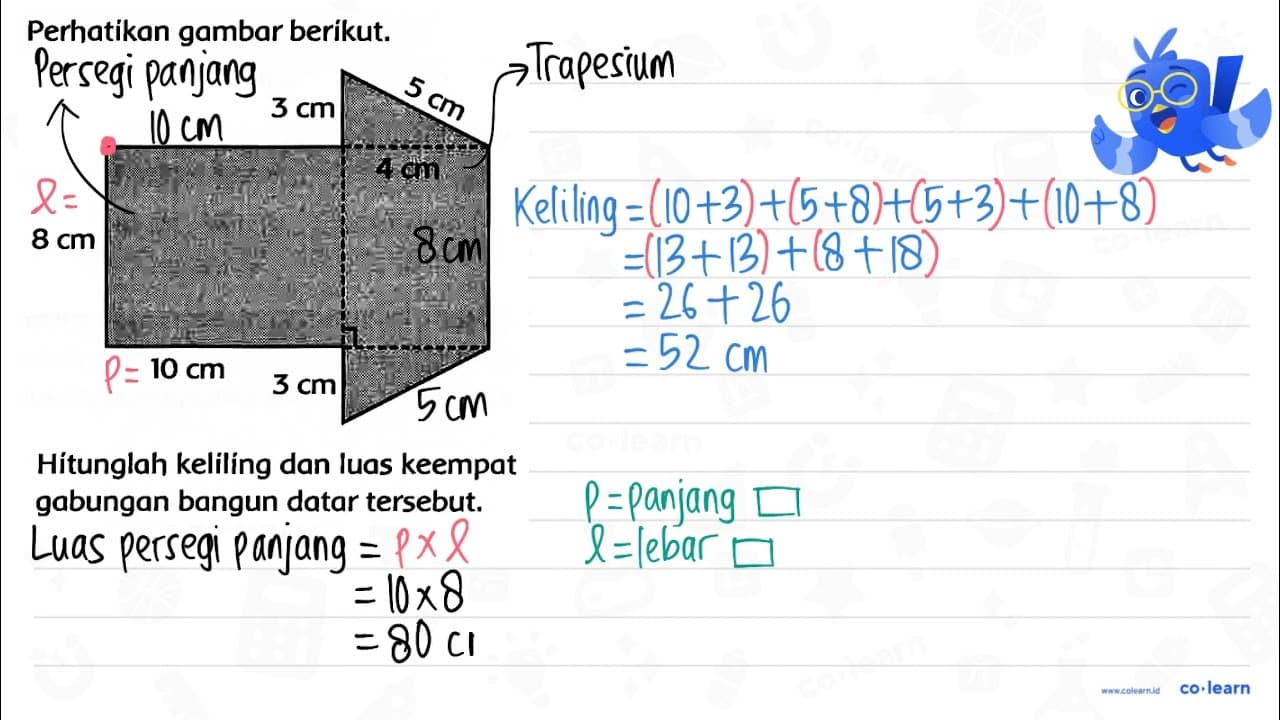 Perhatikan gambar berikut.
Persegi panjang
10 cm
3 cm
5 cm
Trapesium
4 cm
l =
8 cm
8 cm
p = 10 cm
3 cm
5 cm
Keliling = (10+3)+(5+8)+(5+3)+(10+8)
= (13+13)+(8+18)
= 26+26
= 52 cm
Hitunglah keliling dan luas keempat
gabungan bangun datar tersebut.
Luas persegi panjang = p x l
= 10 x 8
= 80 c
p = panjang
l = lebar
www.colearn.id
co·learn